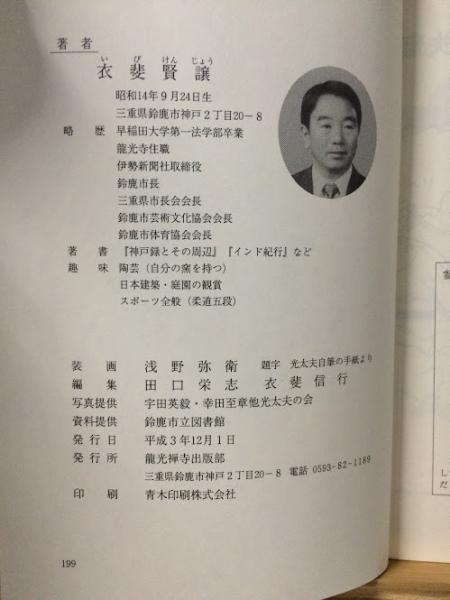 著者
いびけんじょう
衣斐賢讓
昭和14年9月24日生
三重県鈴鹿市神戸2丁目20-8
略歴 早稲田大学第一法学部卒業
龍光寺住職
伊勢新聞社取締役
鈴鹿市長
三重県市長会会長
鈴鹿市芸術文化協会会長
鈴鹿市体育協会会長
著書 『神戸録とその周辺』『インド紀行』など
趣味 陶芸(自分の窯を持つ)
日本建築・庭園の観賞
スポーツ全般(柔道五段)
装画 浅野弥衛 題字 光太夫自筆の手紙より
編集 田口栄志 衣斐信行
写真提供 宇田英毅・幸田至章他光太夫の会
資料提供 鈴鹿市立図書館
発行日 平成3年12月1日
発行所 龍光禅寺出版部
三重県鈴鹿市神戸2丁目20-8 電話 0593-82-1189
印刷 青木印刷株式会社
199